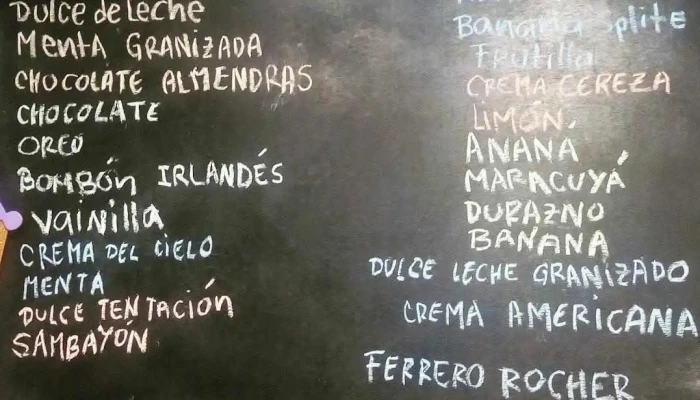 DULCE de LECHE
MENTA GRANIZADA
CHOCOLATE ALMENDRAS
CHOCOLATE
OREO
BOMBÓN IRLANDÉS
Vainilla
CREMA DEL CIELO
MENTA
DULCE TENTACIÓN
SAMBAYÓN
Banana Splite
Frutilla
CREMA CEREZA
LIMÓN
ANANÁ
MARACUYÁ
DURAZNO
BANANA
DULCE LECHE GRANIZADO
CREMA AMERICANA
FERRERO ROCHER